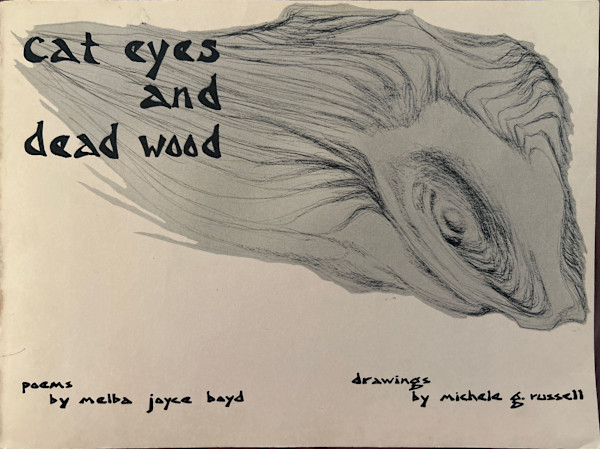 cat eyes
and
dead wood
poems
by melba joyce boyd
drawings
by michele g. russell